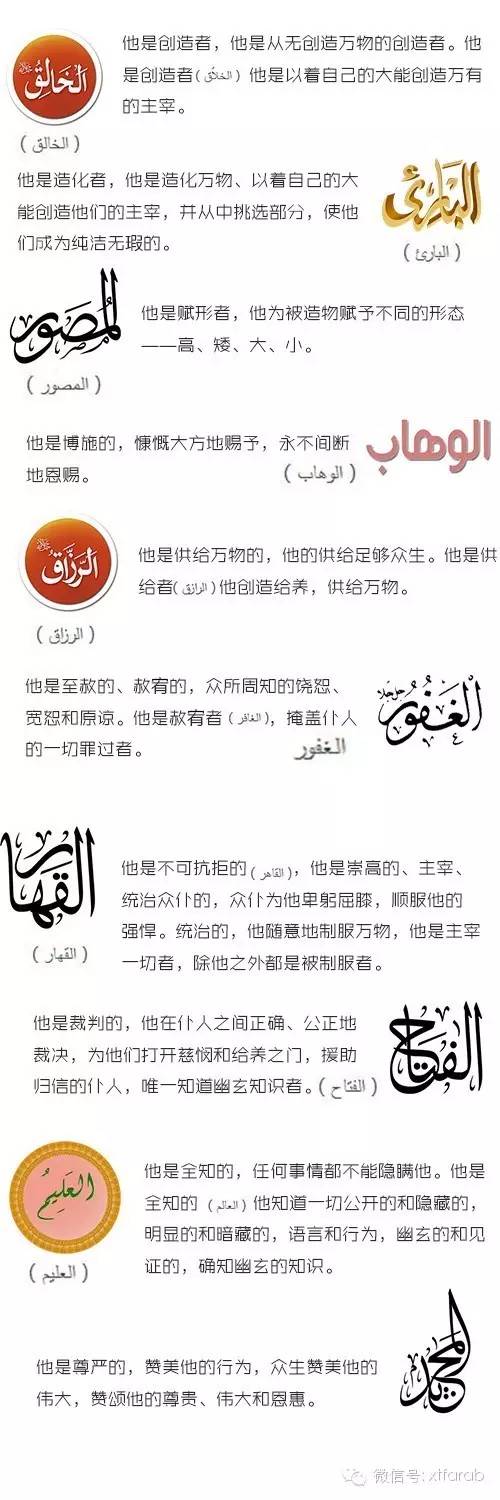 الخالق
他是创造者，他是从无创造万物的创造者。他
是创造者(الخلاّق) 他是以着自己的大能创造万有
的主宰。
(الخالق)
他是造化者，他是造化万物、以着自己的大
能创造他们的主宰，并从中挑选部分，使他
们成为纯洁无瑕的。
البارئ
(البارئ)
المصور
他是赋形者，他为被造物赋予不同的形态
——高、矮、大、小。
(المصور)
他是博施的，慷慨大方地赐予，永不间断
地恩赐。
(الوهاب)
الوهاب
الرزاق
他是供给万物的，他的供给足够众生。他是供
给者(الرازق)他创造给养，供给万物。
(الرزاق)
他是至赦的、赦宥的，众所周知的饶恕、
宽恕和原谅。他是赦宥者(الغافر)，掩盖仆人
的一切罪过者。
الغفور
الغفور
القهار
他是不可抗拒的(القاهر)，他是崇高的、主宰、
统治众仆的，众仆为他卑躬屈膝，顺服他的
强悍。统治的，他随意地制服万物，他是主宰
一切者，除他之外都是被制服者。
(القهار)
他是裁判的，他在仆人之间正确、公正地
裁决，为他们打开慈悯和给养之门，援助
归信的仆人，唯一知道幽玄知识者。(الفتاح)
الفتاح
العليم
他是全知的，任何事情都不能隐瞒他。他是
全知的 (العالم) 他知道一切公开的和隐藏的，
明显的和暗藏的，语言和行为，幽玄的和见
证的，确知幽玄的知识。
(العليم)
他是尊严的，赞美他的行为，众生赞美他的
伟大，赞颂他的尊贵、伟大和恩惠。
المجيد
微信号: xtfarab